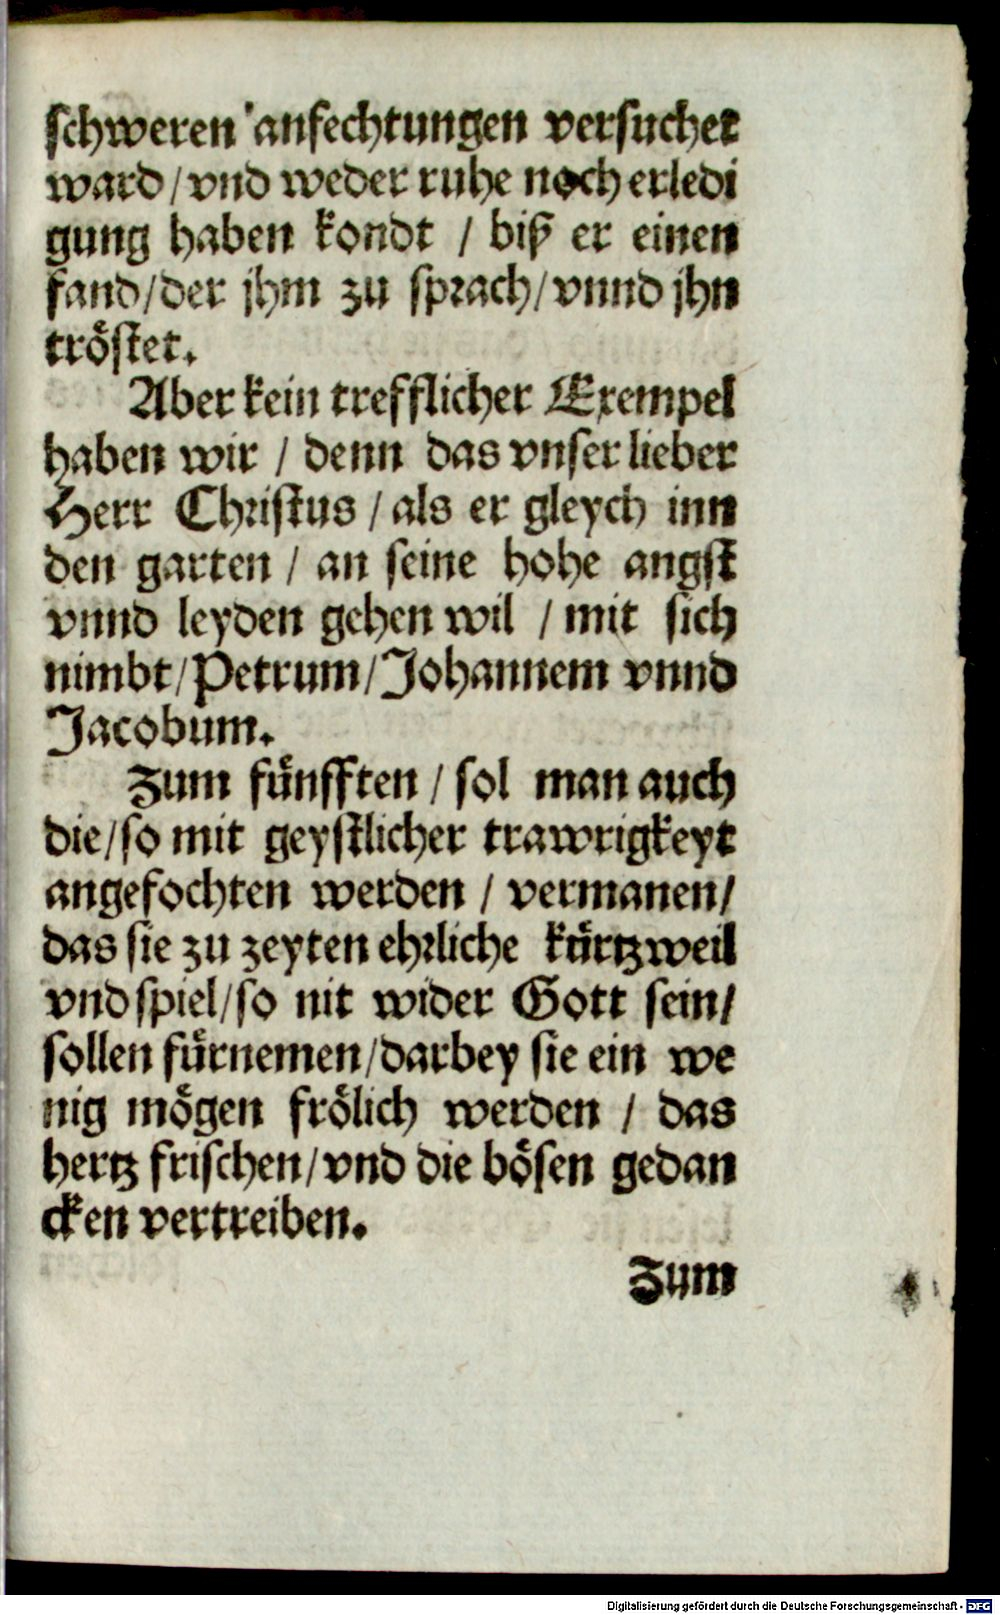 schweren anfechtungen versuchet
ward / vnd weder ruhe noch erledi
gung haben kondt / biß er einen
fand / der jhm zu sprach / vnnd jhn
tröstet.
Aber kein trefflicher Exempel
haben wir / denn das vnser lieber
Herr Christus / als er gleych inn
den garten / an seine hohe angst
vnnd leyden gehen wil / mit sich
nimbt / Petrum / Johannem vnnd
Jacobum.
Zum fünfften / sol man auch
die / so mit geystlicher trawrigkeyt
angefochten werden / vermanen /
das sie zu zeyten ehrliche kürtzweil
vnd spiel / so nit wider Gott sein /
sollen fürnemen / darbey sie ein we
nig mögen frölich werden / das
hertz frischen / vnd die bösen gedan
cken vertreiben.
Zum
Digitalisierung gefördert durch die Deutsche Forschungsgemeinschaft - DFG